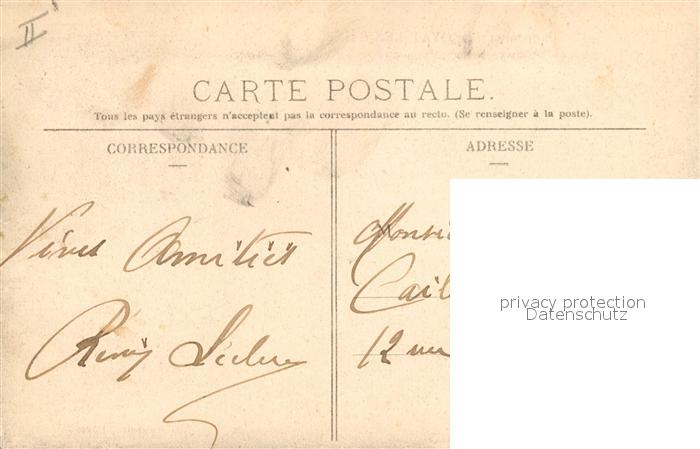 II
CARTE POSTALE.
Tous les pays étrangers n'acceptent pas la correspondance au recto. (Se renseigner à la poste).
CORRESPONDANCE
ADRESSE
Vives Amitiés
Remy
12
privacy protection
Datenschutz